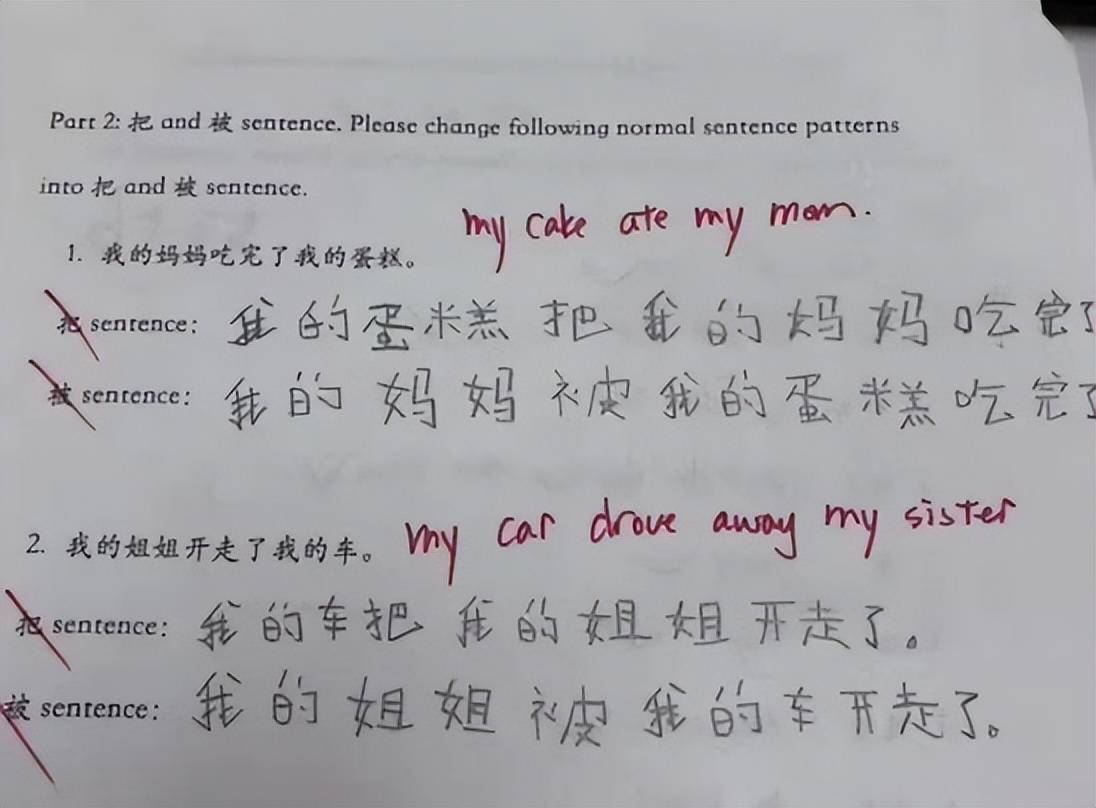 Part 2: 把 and 被 sentence. Please change following normal sentence patterns
into 把 and 被 sentence.
my cake ate my mom.
1. 我的妈妈吃完了我的蛋糕。
把 sentence: 我的蛋糕把我的妈妈吃完了
被 sentence: 我的妈妈被我的蛋糕吃完了
my car drove away my sister
2. 我的姐姐开走了我的车。
把 sentence: 我的车把我的姐姐开走了。
被 sentence: 我的姐姐被我的车开走了。